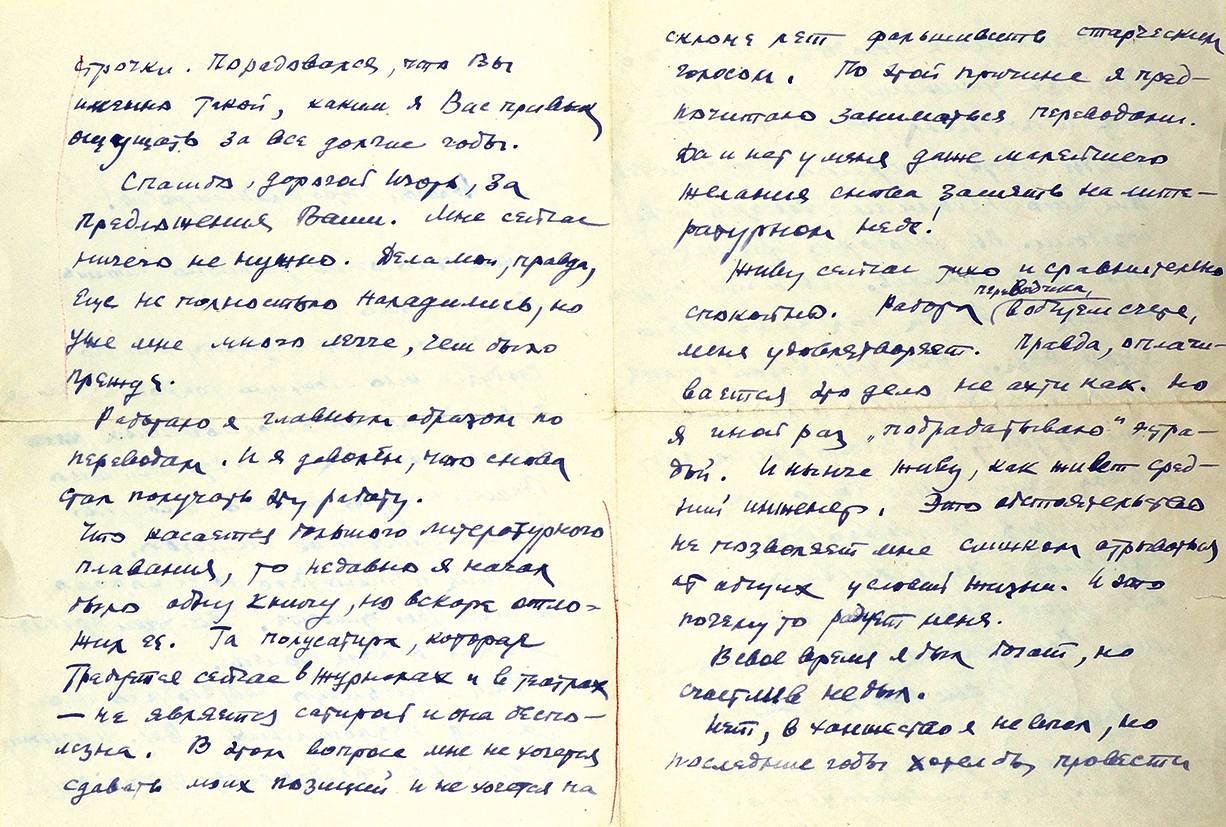 строчки. Порадовался, что Вы
именно такой, каким я Вас привык
ощущать за все долгие годы.
Спасибо, дорогой Игорь, за
предложения Ваши. Мне сейчас
ничего не нужно. Дела мои, правда,
еще не полностью наладились, но
уже мне много легче, чем было
прежде.
Работаю я главным образом по
переводам. И я доволен, что снова
стал получать эту работу.
Что касается большого литературного
плавания, то недавно я начал
было одну книгу, но вскоре отло-
жил ее. Та полусатира, которая
требуется сейчас в журналах и в театрах
— не является сатирой и она беспо-
лезна. В этом вопросе мне не хочется
сдавать моих позиций и не хочется на
склоне лет фальшивить старческим
голосом. По этой причине я пред-
почитаю заниматься переводами.
Да и нет у меня даже малейшего
желания снова засиять на лите-
ратурном небе!
Живу сейчас тихо и сравнительно
спокойно. Работа переводчика, в общем счете,
меня удовлетворяет. Правда, оплачи-
вается это дело не ахти как. Но
я иной раз „подрабатываю" эстра-
дой. И нынче живу, как живет сред-
ний инженер. Это обстоятельство
не позволяет мне слишком отрываться
от общих условий жизни. И это
почему то радует меня.
В свое время я был богат, но
счастлив не был.
Нет, в ханжество я не впал, но
последние годы хотел бы провести